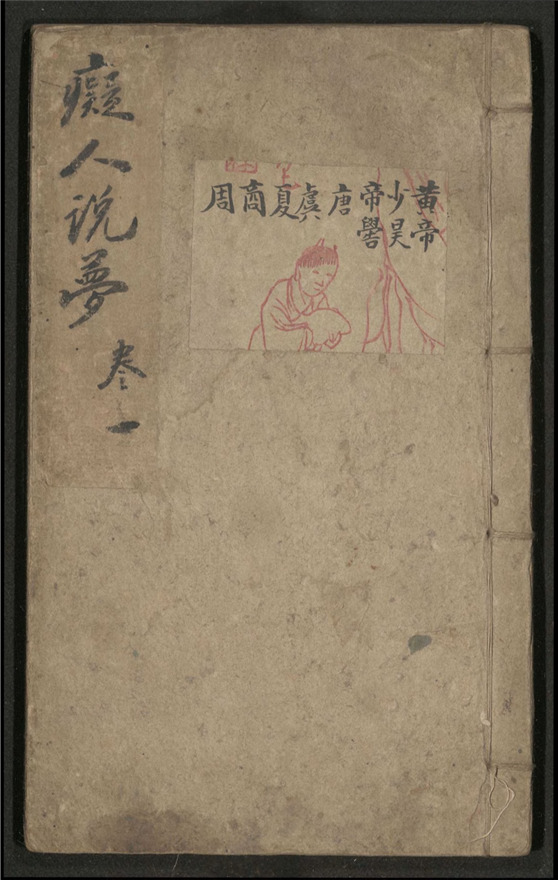 黃帝
少昊
帝嚳
唐
虞
夏
商
周
癡人说夢
卷一